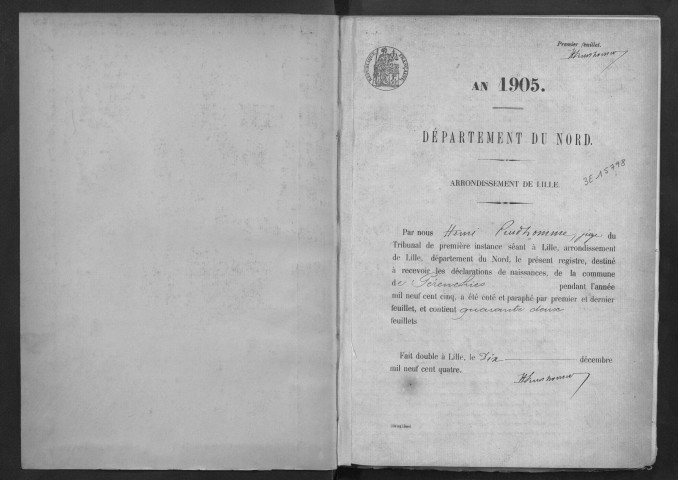 Premier feuillet.
RÉPUBLIQUE FRANÇAISE
AN 1905.
DÉPARTEMENT DU NORD.
3E 15998
ARRONDISSEMENT DE LILLE.
Par nous Henri Prudhomme, juge du
Tribunal de première instance séant à Lille, arrondissement
de Lille, département du Nord, le présent registre, destiné
à recevoir les déclarations de naissances, de la commune
de Pérenchies pendant l'année
mil neuf cent cinq, a été coté et paraphé par premier et dernier
feuillet, et contient quarante deux
feuillets
Fait double à Lille, le Dix décembre
mil neuf cent quatre.